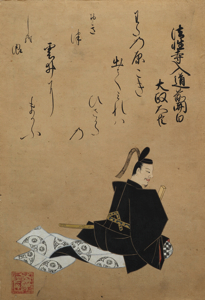 法性寺入道前関白
太政大臣
わたの原こき
出てみれハ
ひさかたの
雲井に
まかふ
おき
津
しら
波